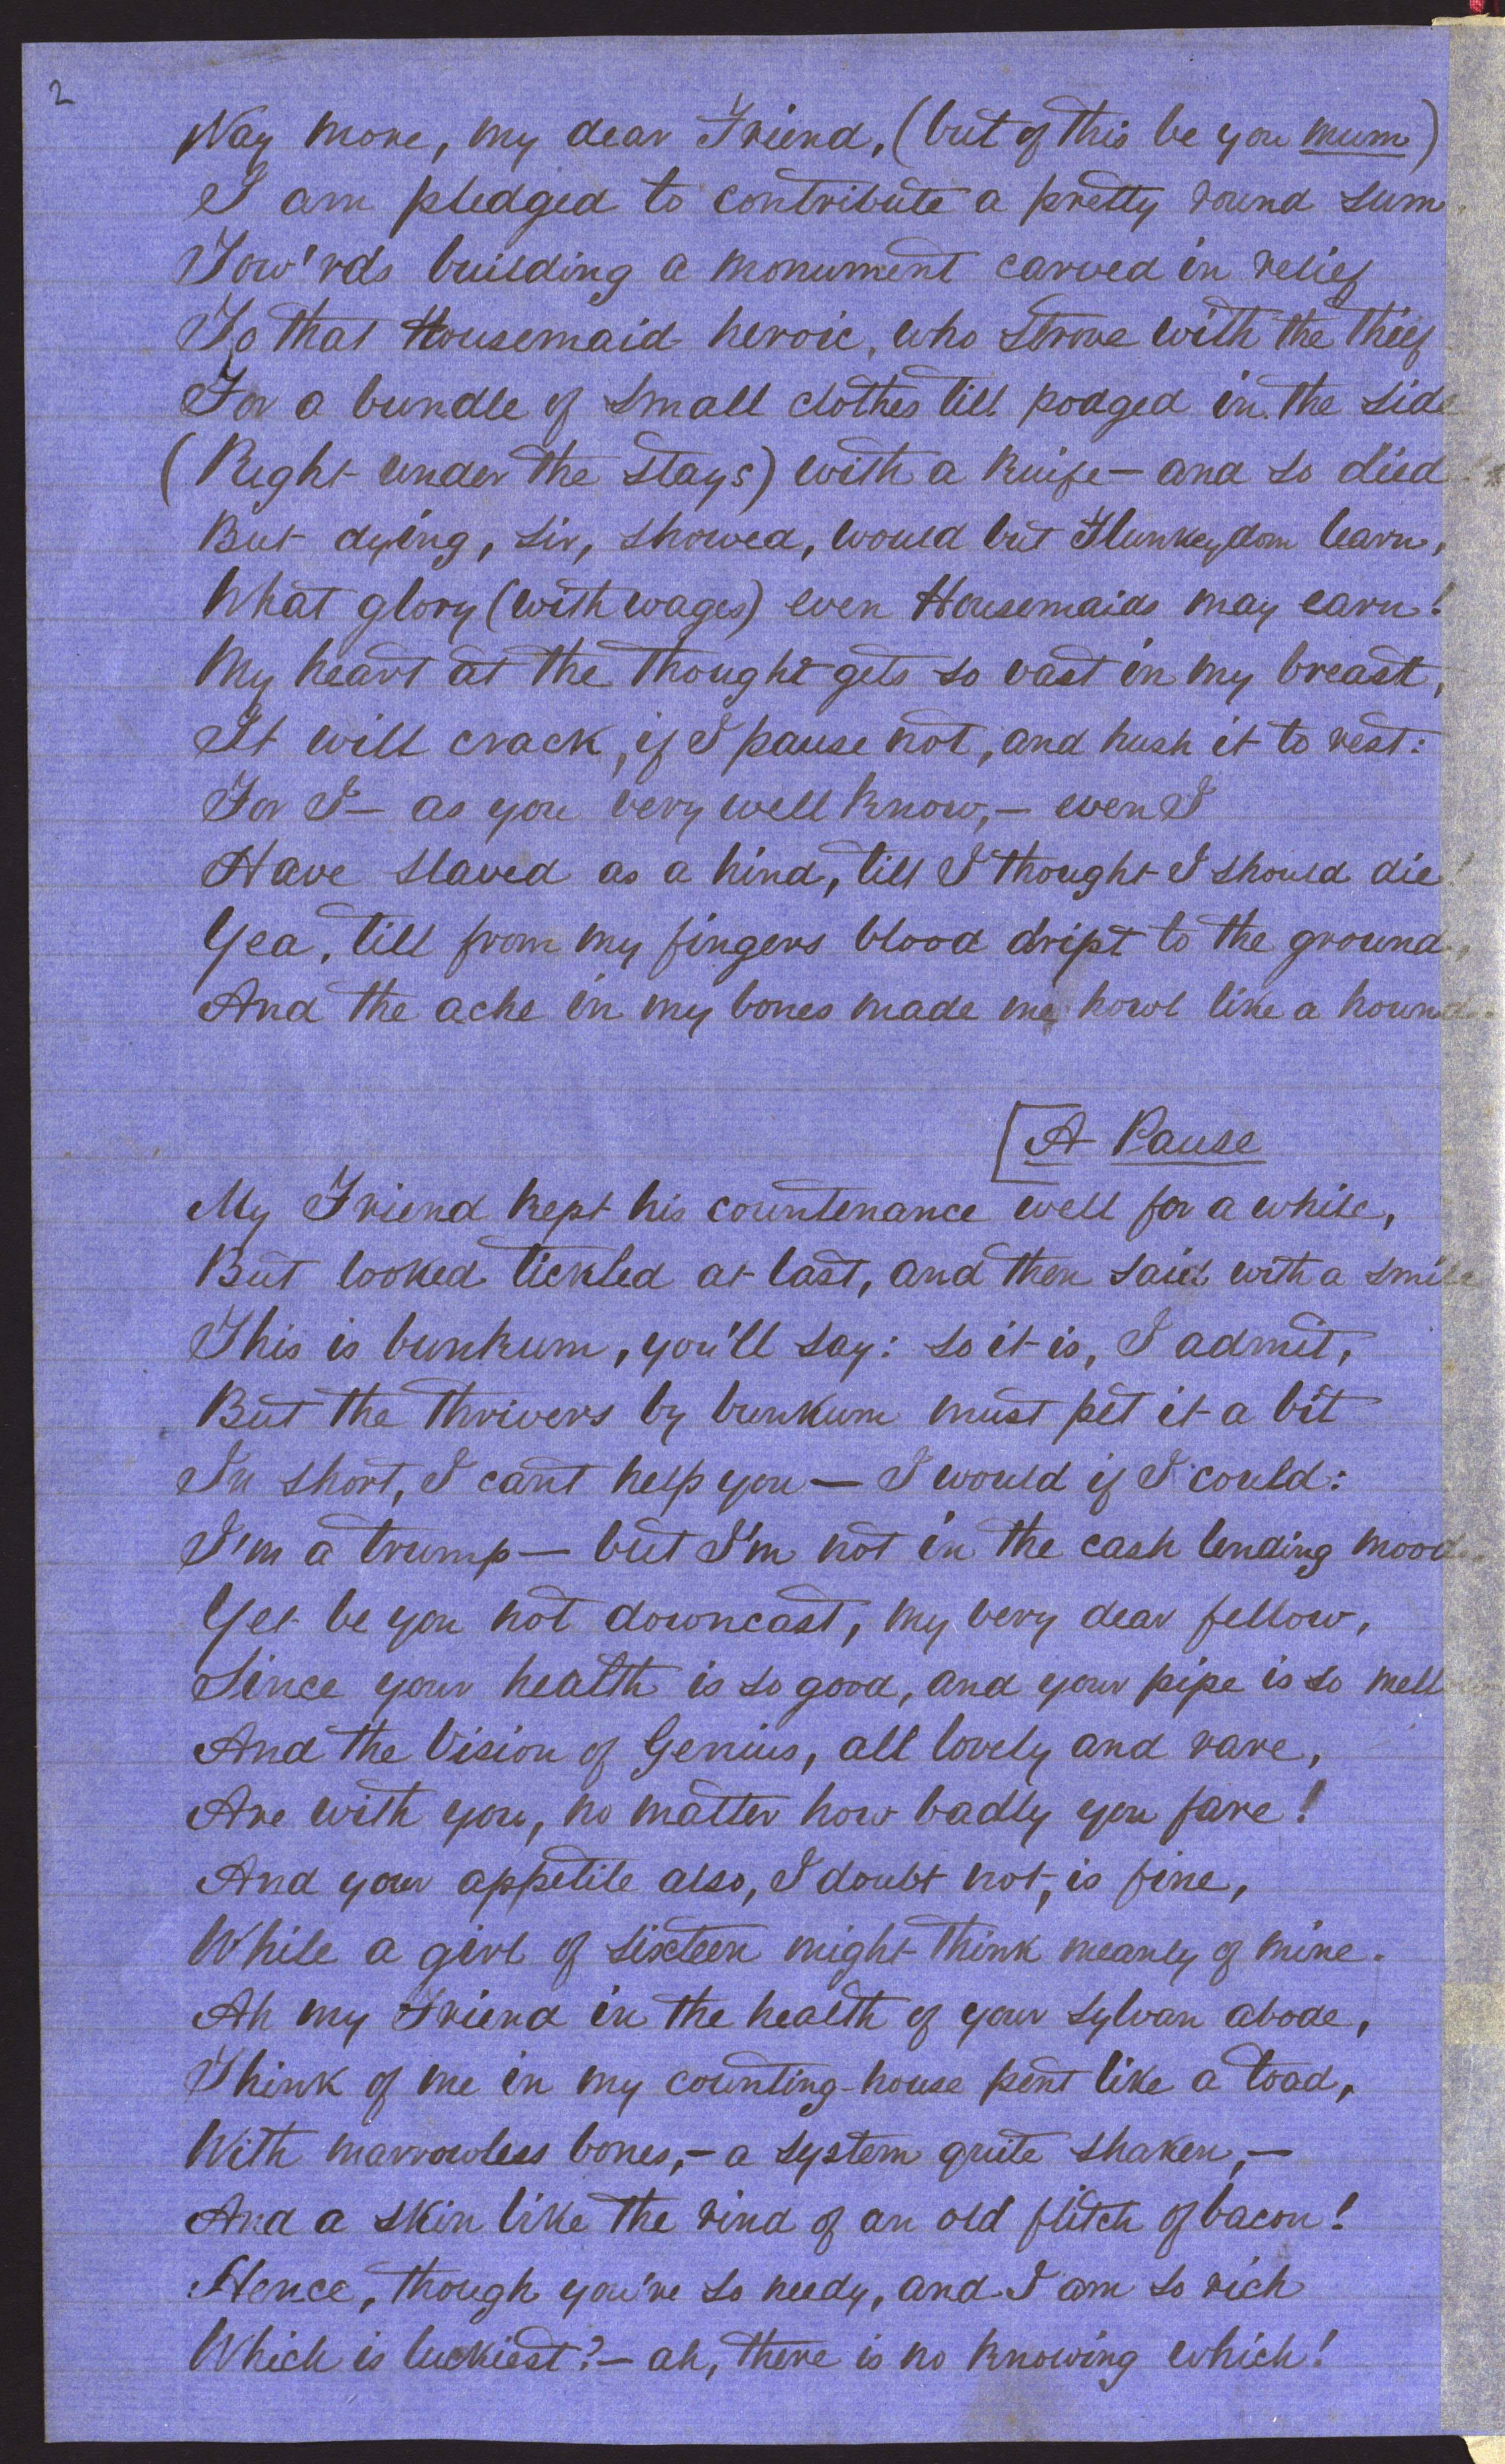 2
Nay more, my dear Friend, (but of this be you mum)
I am pledged to contribute a pretty round sum
Tow'rds building a monument carved in relief
To that Housemaid heroic, who strove with the thief
For a bundle of small clothes till podged in the side
(Right under the stays) with a knife — and so died.
But dying, sir, showed, would but Flunkeydom learn,
What glory (with wages) even Housemaids may earn!
My heart at the thought gets so vast in my breast,
It will crack, if I pause not, and hush it to rest:
For I — as you very well know, — even I
Have slaved as a hind, till I thought I should die!
Yea, till from my fingers blood dript to the ground,
And the ache in my bones made me howl like a hound.
[A Pause
My Friend kept his countenance well for a while,
But looked tickled at last, and then said with a smile
This is bunkum, you'll say: so it is, I admit,
But the thrivers by bunkum must pet it a bit
In short, I cant help you — I would if I could:
I'm a trump — but I'm not in the cash lending mood.
Yet be you not downcast, my very dear fellow,
Since your health is so good, and your pipe is so mell
And the Vision of Genius, all lovely and rare,
Are with you, no matter how badly you fare!
And your appetite also, I doubt not, is fine,
While a girl of sixteen might think meanly of mine.
Ah my Friend in the health of your sylvan abode,
Think of me in my counting-house pent like a toad,
With marrowless bones, — a system quite shaken, —
And a skin like the rind of an old flitch of bacon!
Hence, though you're so needy, and I am so rich
Which is luckiest? — ah, there is no knowing which!